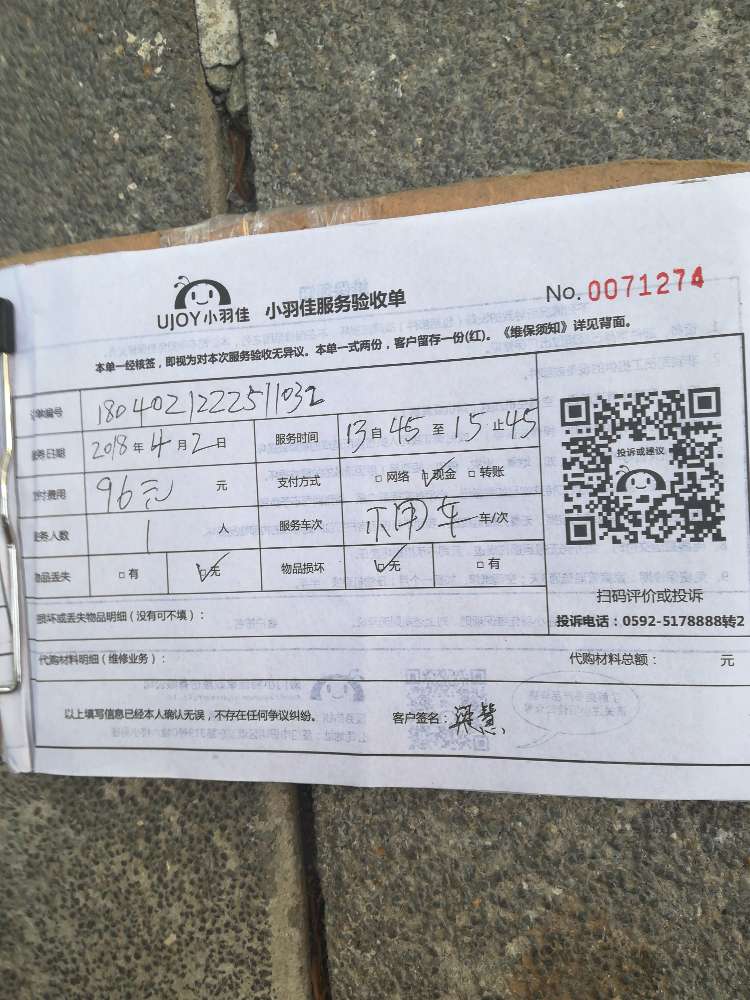 UJOY小羽佳 小羽佳服务验收单 No. 0071274
本单一经核签，即视为对本次服务验收无异议。本单一式两份，客户留存一份(红)。《维保须知》详见背面。
单编号 1804021222511032
务日期 2018年4月2日 服务时间 13自45至15止45
付费用 96元 元 支付方式 □网络 ☑现金 □转账
务人数 1 人 服务车次 不用车 车/次
物品丢失 □有 ☑无 物品损坏 ☑无 □有
投诉或建议
扫码评价或投诉
损坏或丢失物品明细（没有可不填）： 投诉电话：0592-5178888转2
代购材料明细（维修业务）： 代购材料总额： 元
以上填写信息已经本人确认无误，不存在任何争议纠纷。 客户签名：梁慧